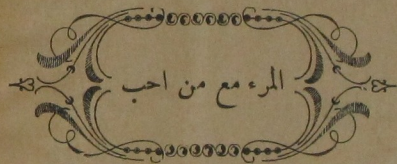 المرء مع من احب